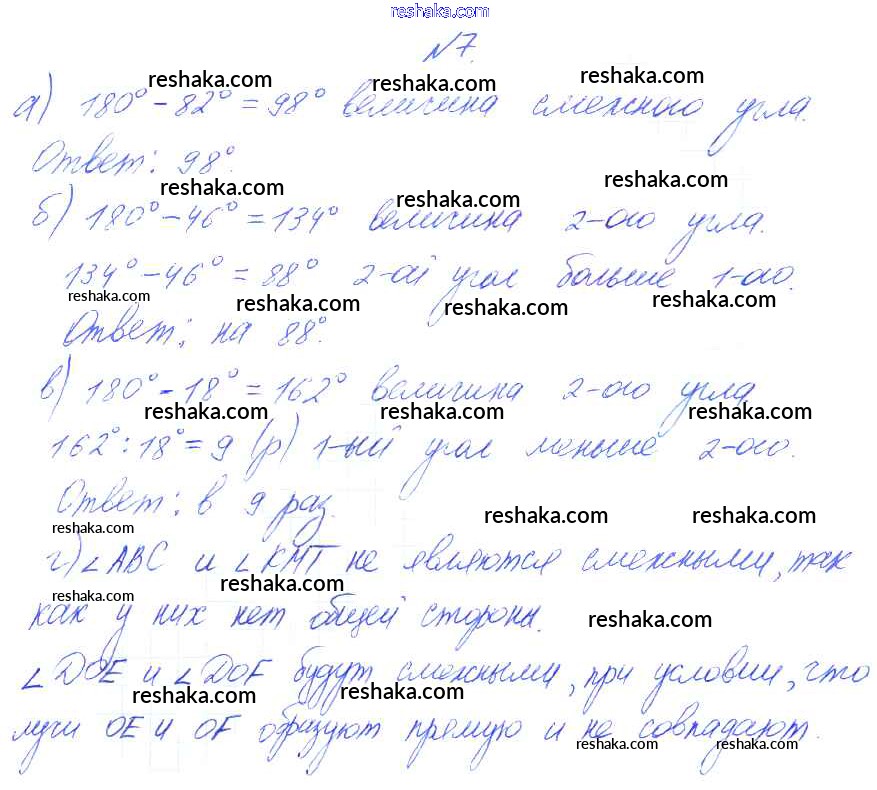 reshaka.com
№7.
reshaka.com reshaka.com reshaka.com
а) 180° - 82° = 98° величина смежного угла.
Ответ: 98°.
reshaka.com reshaka.com reshaka.com
б) 180° - 46° = 134° величина 2-ого угла.
134° - 46° = 88° 2-ой угол больше 1-ого.
reshaka.com reshaka.com reshaka.com reshaka.com
Ответ: на 88°.
в) 180° - 18° = 162° величина 2-ого угла
reshaka.com reshaka.com reshaka.com
162° : 18° = 9 (р) 1-ый угол меньше 2-ого.
Ответ: в 9 раз.
reshaka.com reshaka.com reshaka.com
г) ∠ABC и ∠KMT не являются смежными, так
reshaka.com reshaka.com
как у них нет общей стороны. reshaka.com
∠DOE и ∠DOF будут смежными, при условии, что
reshaka.com reshaka.com
лучи OE и OF образуют прямую и не совпадают.
reshaka.com reshaka.com